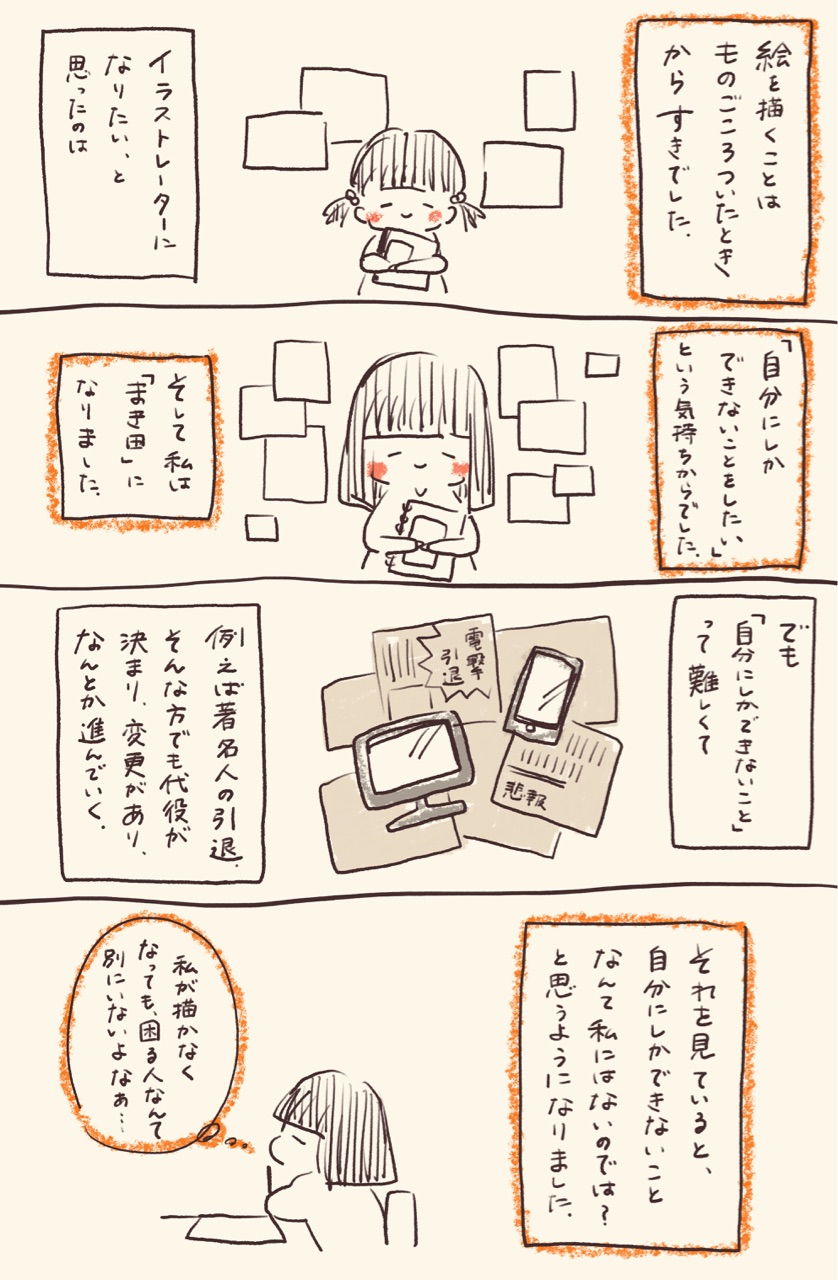 絵を描くことは
ものごころついたとき
からすきでした。
イラストレーターに
なりたい、と
思ったのは
「自分にしか
できないことをしたい」
という気持ちからでした。
そして私は
「まき田」に
なりました。
でも
「自分にしかできないこと」
って難しくて
電撃
引退
悲報
例えば著名人の引退。
そんな方でも代役が
決まり、変更があり、
なんとか進んでいく。
それを見ていると、
自分にしかできないこと
なんて私にはないのでは?
と思うようになりました。
私が描かなく
なっても、困る人なんて
別にいないよなぁ…